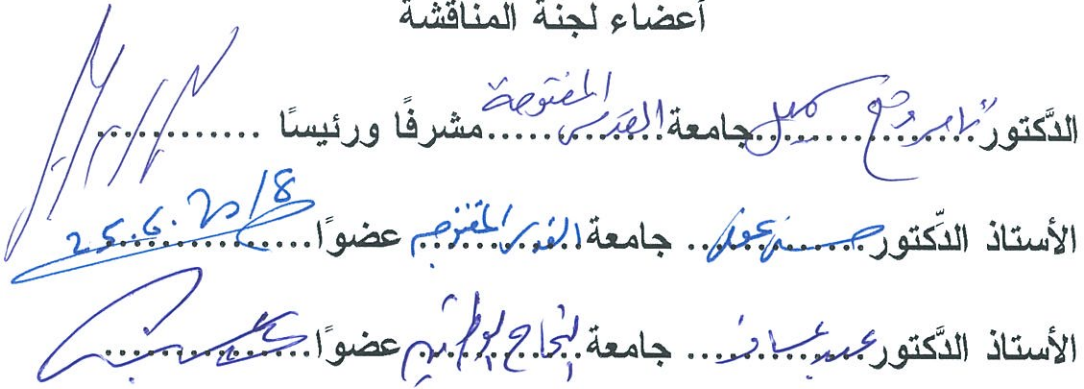 أعضاء لجنة المناقشة
الدَّكتور................جامعة القدس المفتوحة مشرفًا ورئيسًا ............
الأستاذ الدَّكتور حسن ............ جامعة القدس المفتوحة عضوًا 25.6.2018
الأستاذ الدَّكتور ............ عساف ............ جامعة النجاح الوطنية عضوًا